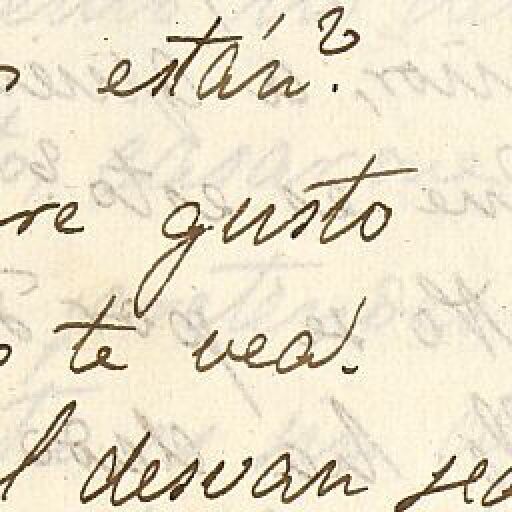 están?
re gusto
te vea!
l desvan sea